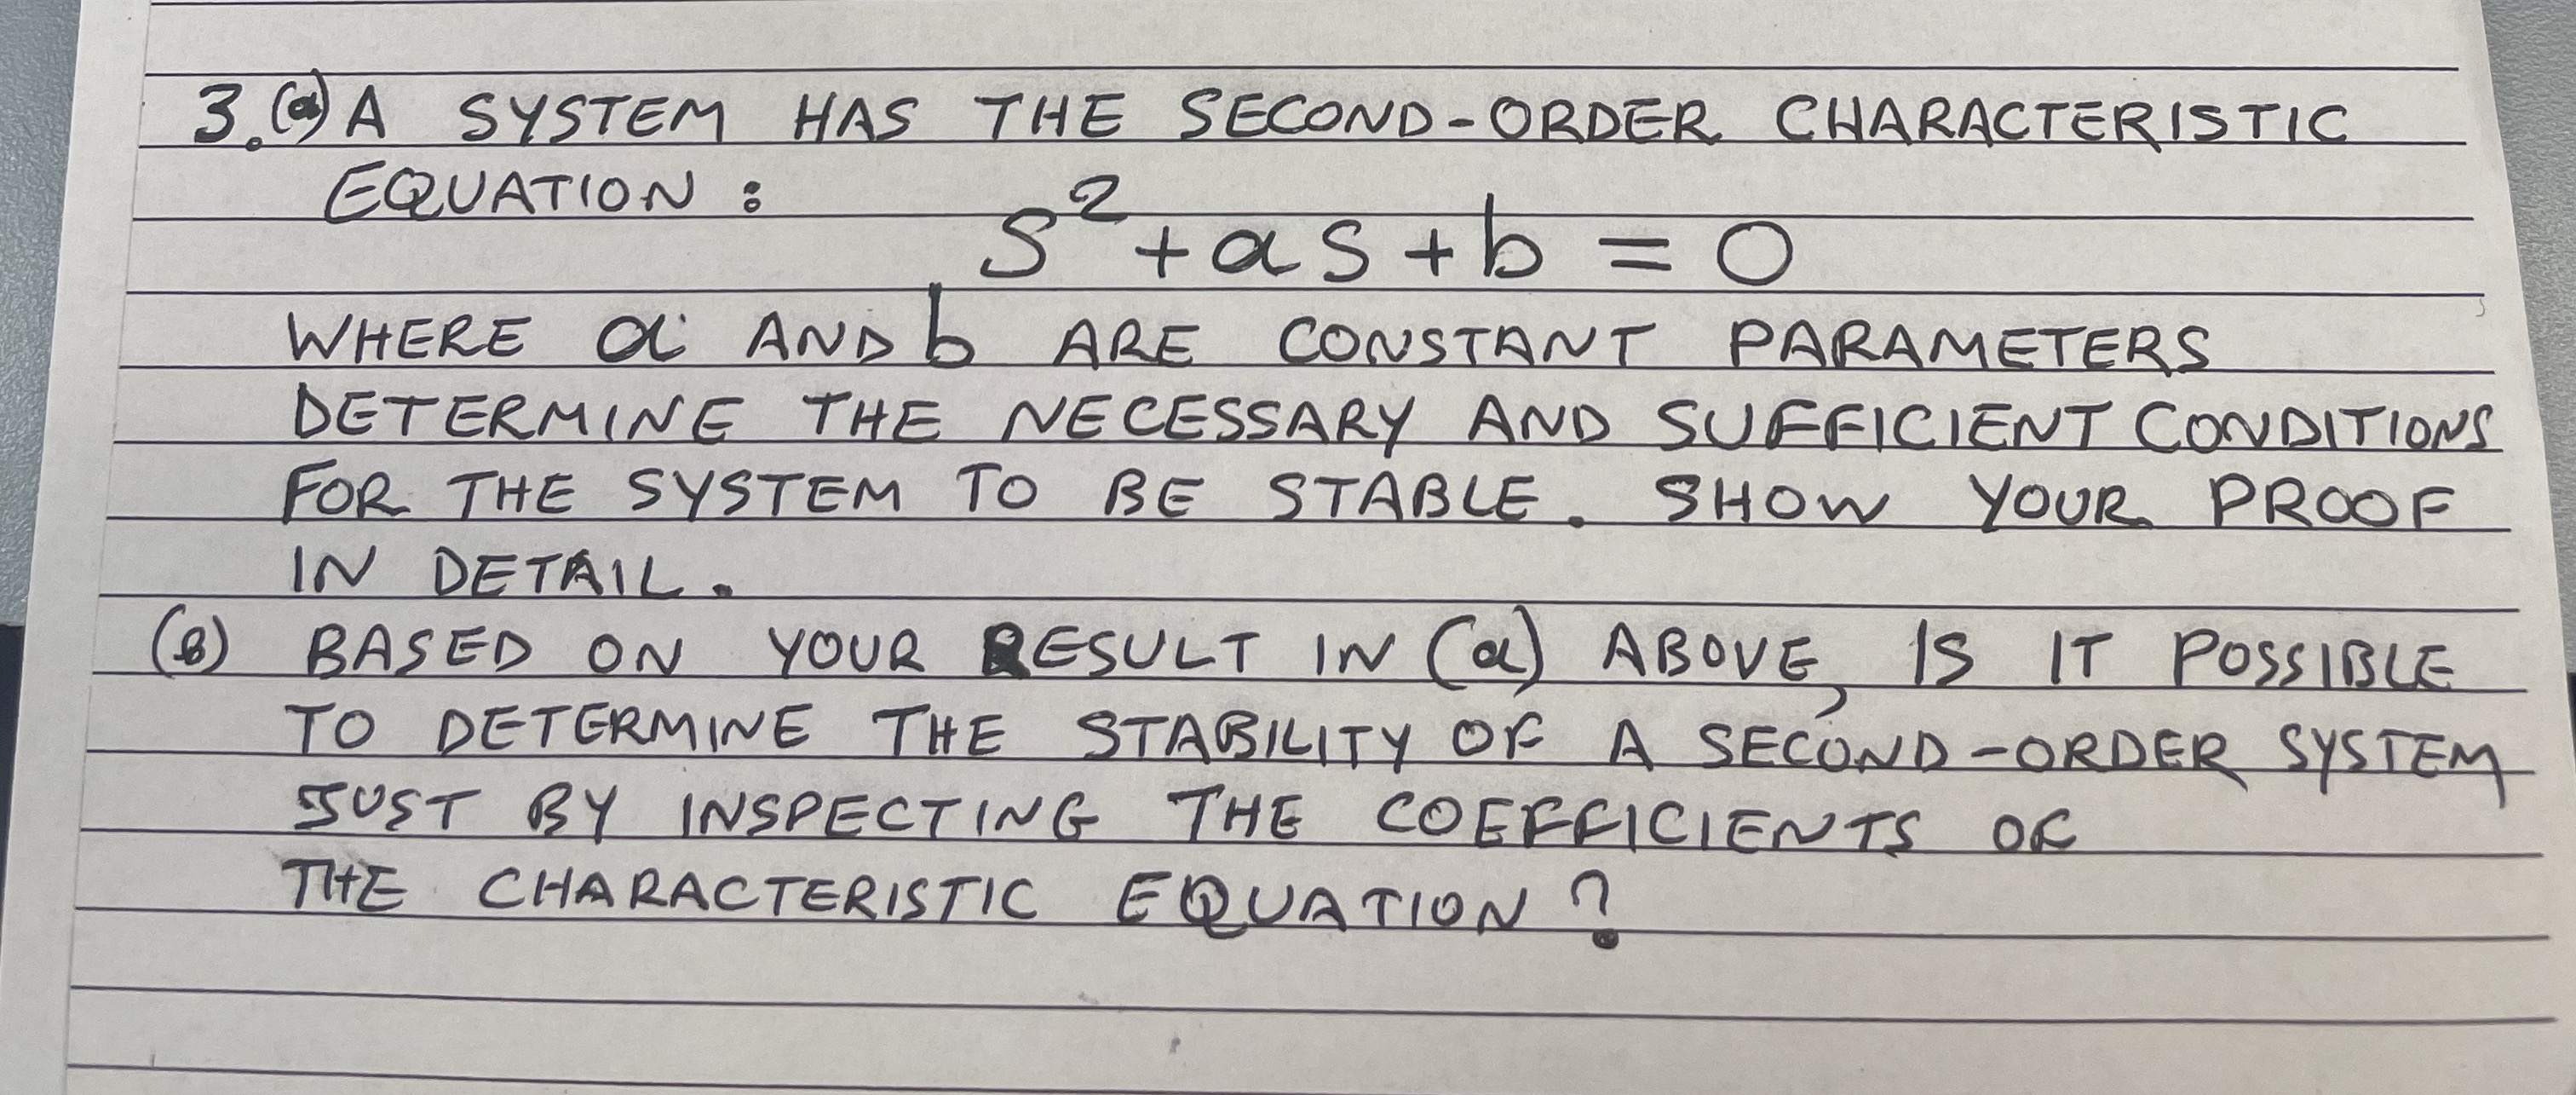 3.(a) A SYSTEM HAS THE SECOND-ORDER CHARACTERISTIC
EQUATION:
s² + as + b = 0
WHERE a AND b ARE CONSTANT PARAMETERS
DETERMINE THE NECESSARY AND SUFFICIENT CONDITIONS
FOR THE SYSTEM TO BE STABLE. SHOW YOUR PROOF
IN DETAIL.
(b) BASED ON YOUR RESULT IN (a) ABOVE, IS IT POSSIBLE
TO DETERMINE THE STABILITY OF A SECOND-ORDER SYSTEM
JUST BY INSPECTING THE COEFFICIENTS OF
THE CHARACTERISTIC EQUATION?